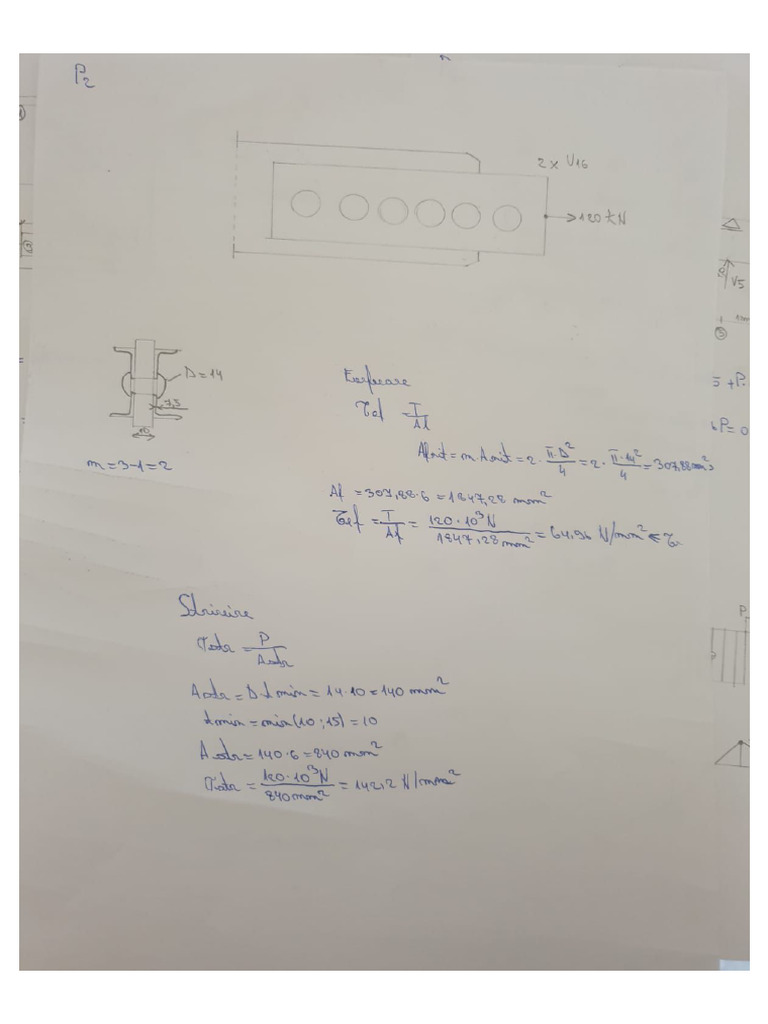 P2
2 x U16
120 kN
D=14
7,5
10
m=3-1=2
Forfecare
τef = T/Af
Afnit = m·Anit = 2 · π·D²/4 = 2 · π·14²/4 = 307,88 mm²
Af = 307,88·6 = 1847,28 mm²
τef = T/Af = 120·10³N / 1847,28 mm² = 64,96 N/mm² <
Strivire
σstr = P/Astr
Astr = D·tmin = 14·10 = 140 mm²
tmin = min(10;15) = 10
Astr = 140·6 = 840 mm²
σstr = 120·10³N / 840 mm² = 142,2 N/mm²
V5
P=0